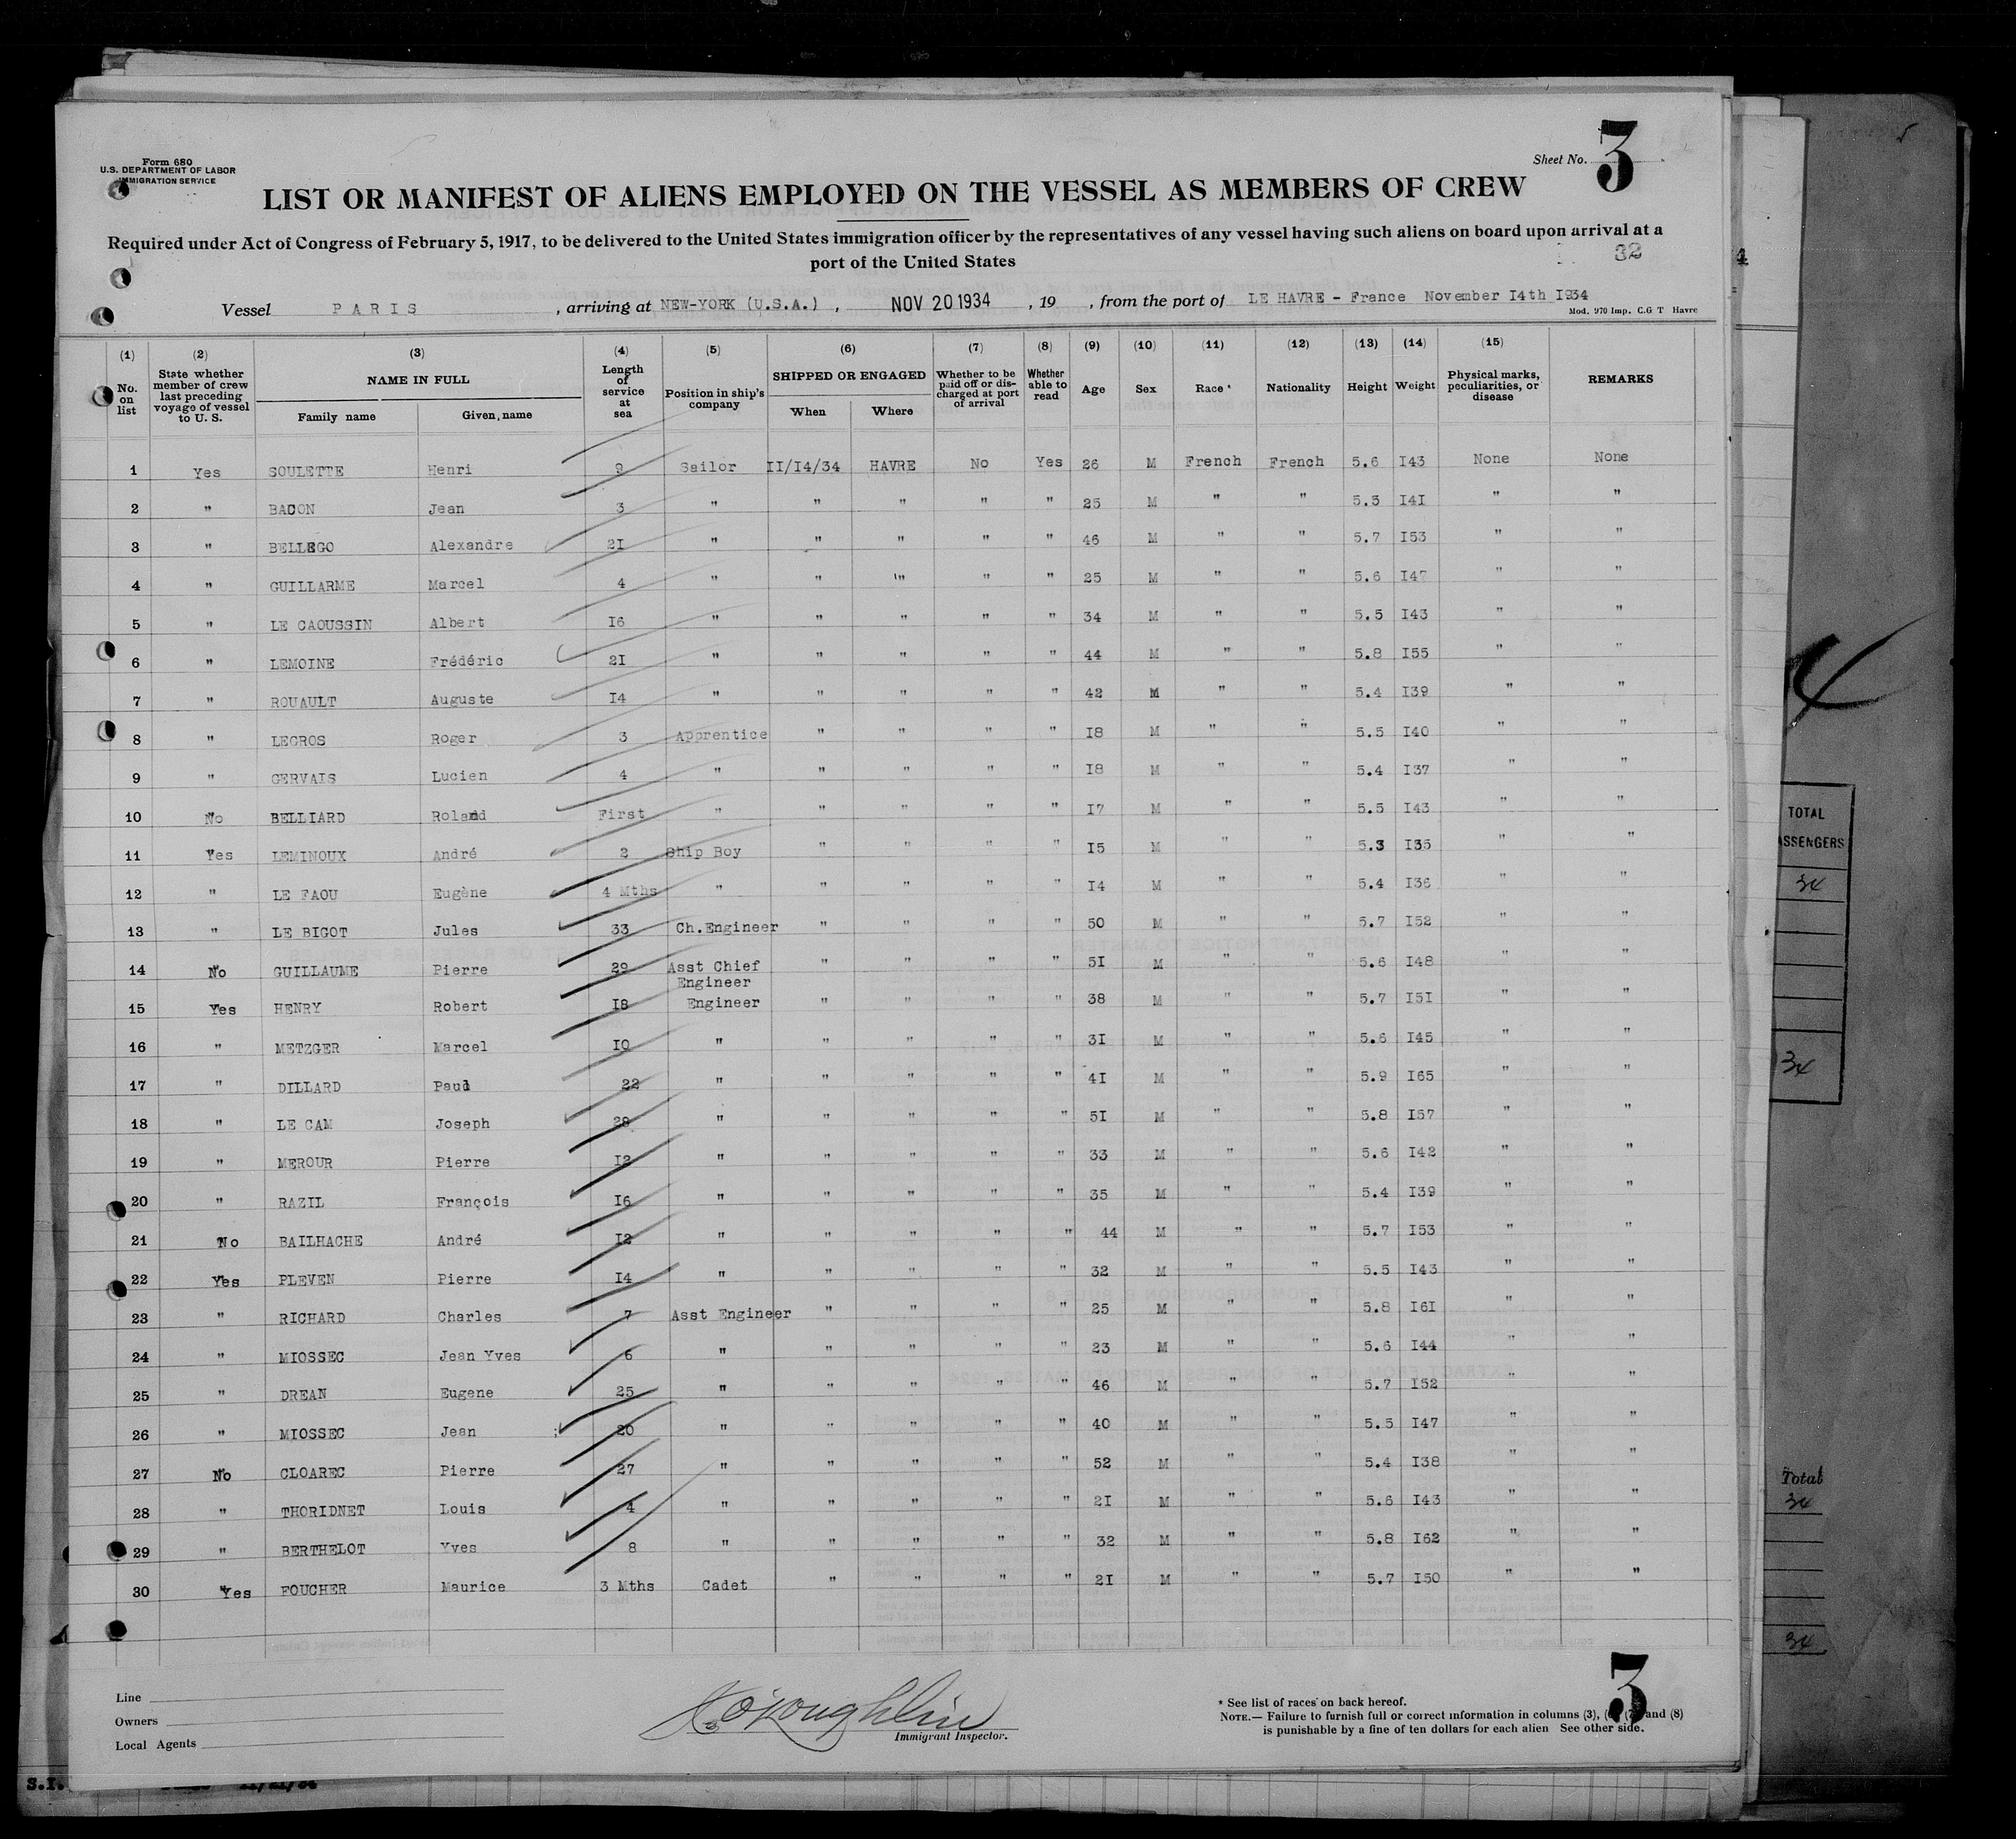 Form 680
U.S. DEPARTMENT OF LABOR
IMMIGRATION SERVICE
Sheet No. 3
LIST OR MANIFEST OF ALIENS EMPLOYED ON THE VESSEL AS MEMBERS OF CREW
Required under Act of Congress of February 5, 1917, to be delivered to the United States immigration officer by the representatives of any vessel having such aliens on board upon arrival at a
port of the United States
32
Vessel PARIS , arriving at NEW-YORK (U.S.A.) , NOV 20 1934 , 19 , from the port of LE HAVRE - France November I4th I934
Mod. 970 Imp. C.G T Havre
(1) (2) (3) (4) (5) (6) (7) (8) (9) (10) (11) (12) (13) (14) (15)
No. on list State whether member of crew last preceding voyage of vessel to U. S. NAME IN FULL Family name Given name Length of service at sea Position in ship's company SHIPPED OR ENGAGED When Where Whether to be paid off or discharged at port of arrival Whether able to read Age Sex Race * Nationality Height Weight Physical marks, peculiarities, or disease REMARKS
1 Yes SOULETTE Henri 9 Sailor II/I4/34 HAVRE No Yes 26 M French French 5.6 I43 None None
2 " BACON Jean 3 " " " " " 25 M " " 5.5 I4I " "
3 " BELLEGO Alexandre 2I " " " " " 46 M " " 5.7 I53 " "
4 " GUILLARME Marcel 4 " " " " " 25 M " " 5.6 I47 " "
5 " LE CAOUSSIN Albert I6 " " " " " 34 M " " 5.5 I43 " "
6 " LEMOINE Frédéric 2I " " " " " 44 M " " 5.8 I55 " "
7 " ROUAULT Auguste I4 " " " " " 42 M " " 5.4 I39 " "
8 " LEGROS Roger 3 Apprentice " " " " I8 M " " 5.5 I40 " "
9 " GERVAIS Lucien 4 " " " " " I8 M " " 5.4 I37 " "
10 No BELLIARD Roland First " " " " " I7 M " " 5.5 I43 " "
11 Yes LEMINOUX André 2 Ship Boy " " " " I5 M " " 5.3 I35 " "
12 " LE FAOU Eugène 4 Mths " " " " " I4 M " " 5.4 I36 " "
13 " LE BIGOT Jules 33 Ch.Engineer " " " " 50 M " " 5.7 I52 " "
14 No GUILLAUME Pierre 29 Asst Chief Engineer " " " " 5I M " " 5.6 I48 " "
15 Yes HENRY Robert I8 Engineer " " " " 38 M " " 5.7 I5I " "
16 " METZGER Marcel I0 " " " " " 3I M " " 5.6 I45 " "
17 " DILLARD Paul 22 " " " " " 4I M " " 5.9 I65 " "
18 " LE CAM Joseph 28 " " " " " 5I M " " 5.8 I57 " "
19 " MEROUR Pierre I2 " " " " " 33 M " " 5.6 I42 " "
20 " RAZIL François I6 " " " " " 35 M " " 5.4 I39 " "
21 No BAILHACHE André I2 " " " " " 44 M " " 5.7 I53 " "
22 Yes PLEVEN Pierre I4 " " " " " 32 M " " 5.5 I43 " "
23 " RICHARD Charles 7 Asst Engineer " " " " 25 M " " 5.8 I6I " "
24 " MIOSSEC Jean Yves 6 " " " " " 23 M " " 5.6 I44 " "
25 " DREAN Eugene 25 " " " " " 46 M " " 5.7 I52 " "
26 " MIOSSEC Jean 20 " " " " " 40 M " " 5.5 I47 " "
27 No CLOAREC Pierre 27 " " " " " 52 M " " 5.4 I38 " "
28 " THORIDNET Louis 4 " " " " " 2I M " " 5.6 I43 " "
29 " BERTHELOT Yves 8 " " " " " 32 M " " 5.8 I62 " "
30 Yes FOUCHER Maurice 3 Mths Cadet " " " " 2I M " " 5.7 I50 " "
Line
Owners
Local Agents
Immigrant Inspector.
* See list of races on back hereof.
NOTE.— Failure to furnish full or correct information in columns (3), (7) and (8)
is punishable by a fine of ten dollars for each alien See other side.
3
TOTAL
34
34
Total
34
34
4
S.I.